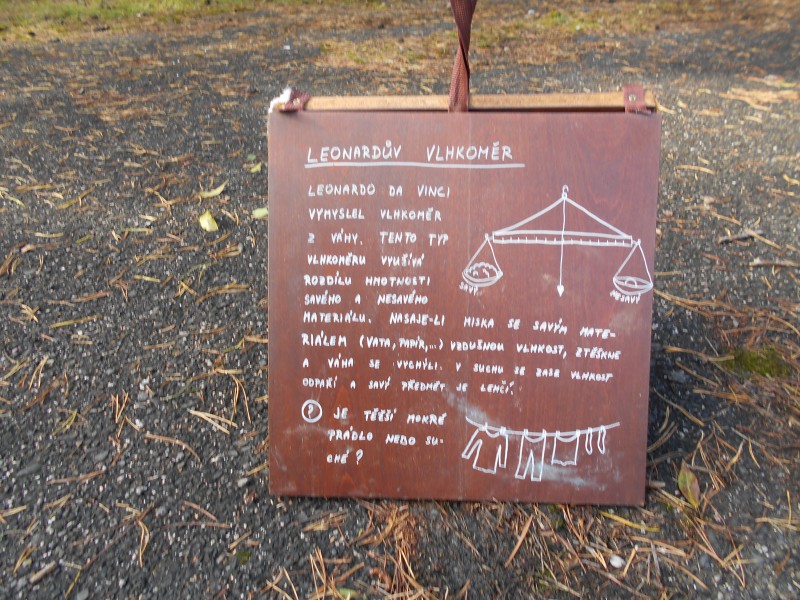 LEONARDŮV VLHKOMĚR
LEONARDO DA VINCI
VYMYSLEL VLHKOMĚR
Z VÁHY. TENTO TYP
VLHKOMĚRU VYUŠÍVÁ
ROZDÍLU HMOTNOSTI
SAVÉHO A NESAVÉHO
MATERIÁLU. NASAJE-LI MISKA SE SAVÝM MATE-
RIÁLEM (VATA, PAPÍR,...) VZDUŠNOU VLHKOST, ZTĚŠKNE
A VÁHA SE VYCHÝLÍ. V SUCHU SE ZASE VLHKOST
ODPAŘÍ A SAVÝ PŘEDMĚT JE LEHČÍ.
SAVÝ
NESAVÝ
? JE TĚŠŠÍ MOKRÉ
PRÁDLO NEDO SU-
CHÉ ?